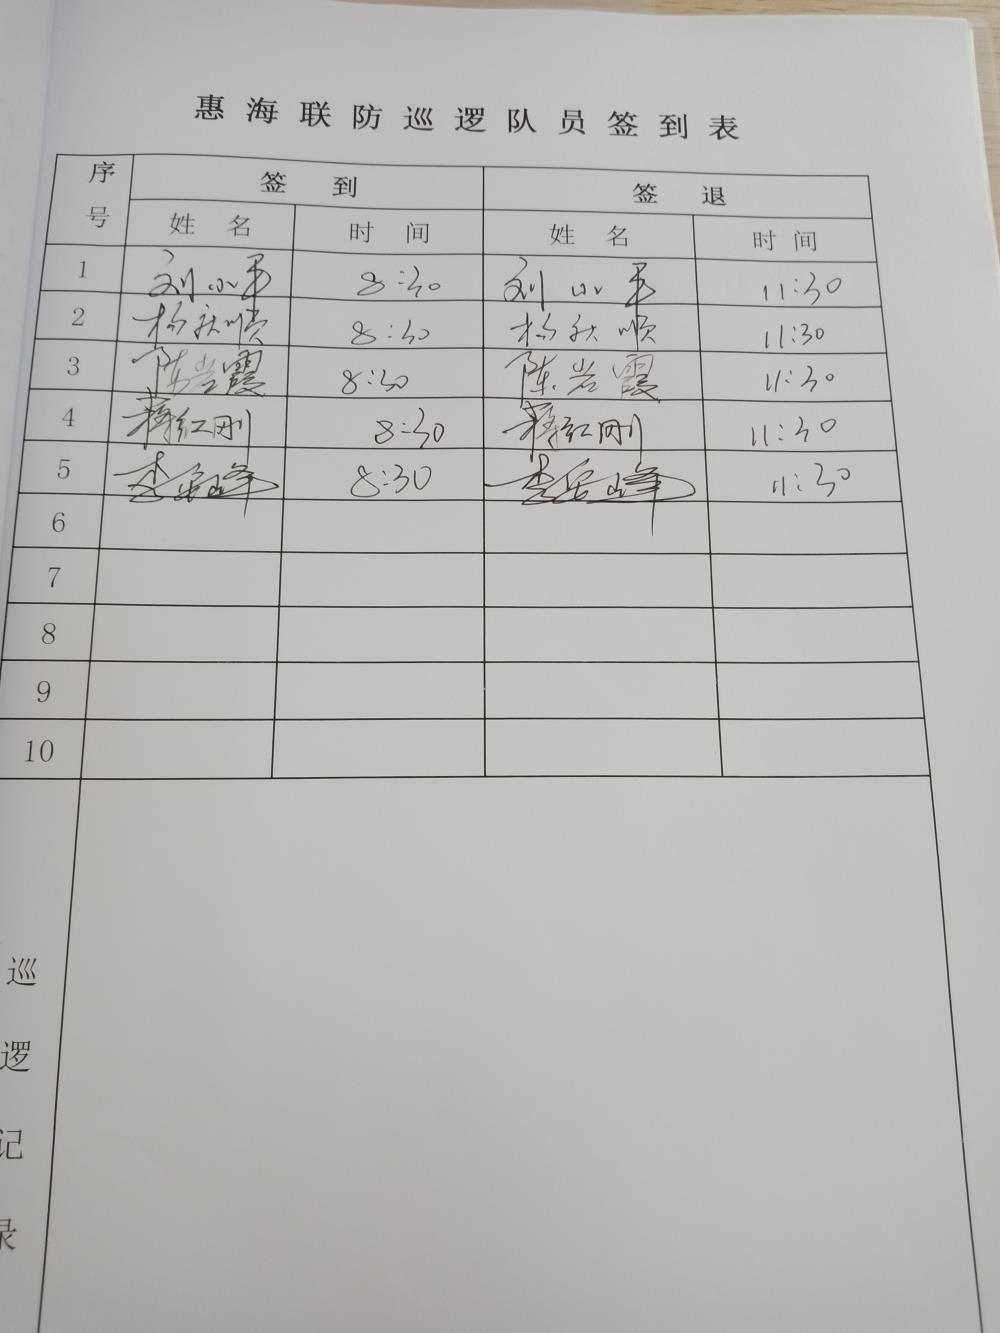 惠海联防巡逻队员签到表
序号 签到 签退
姓名 时间 姓名 时间
1 刘小军 8:30 刘小军 11:30
2 杨秋顺 8:30 杨秋顺 11:30
3 陈岩霞 8:30 陈岩霞 11:30
4 蒋红刚 8:30 蒋红刚 11:30
5 李岳峰 8:30 李岳峰 11:30
6
7
8
9
10
巡逻记录